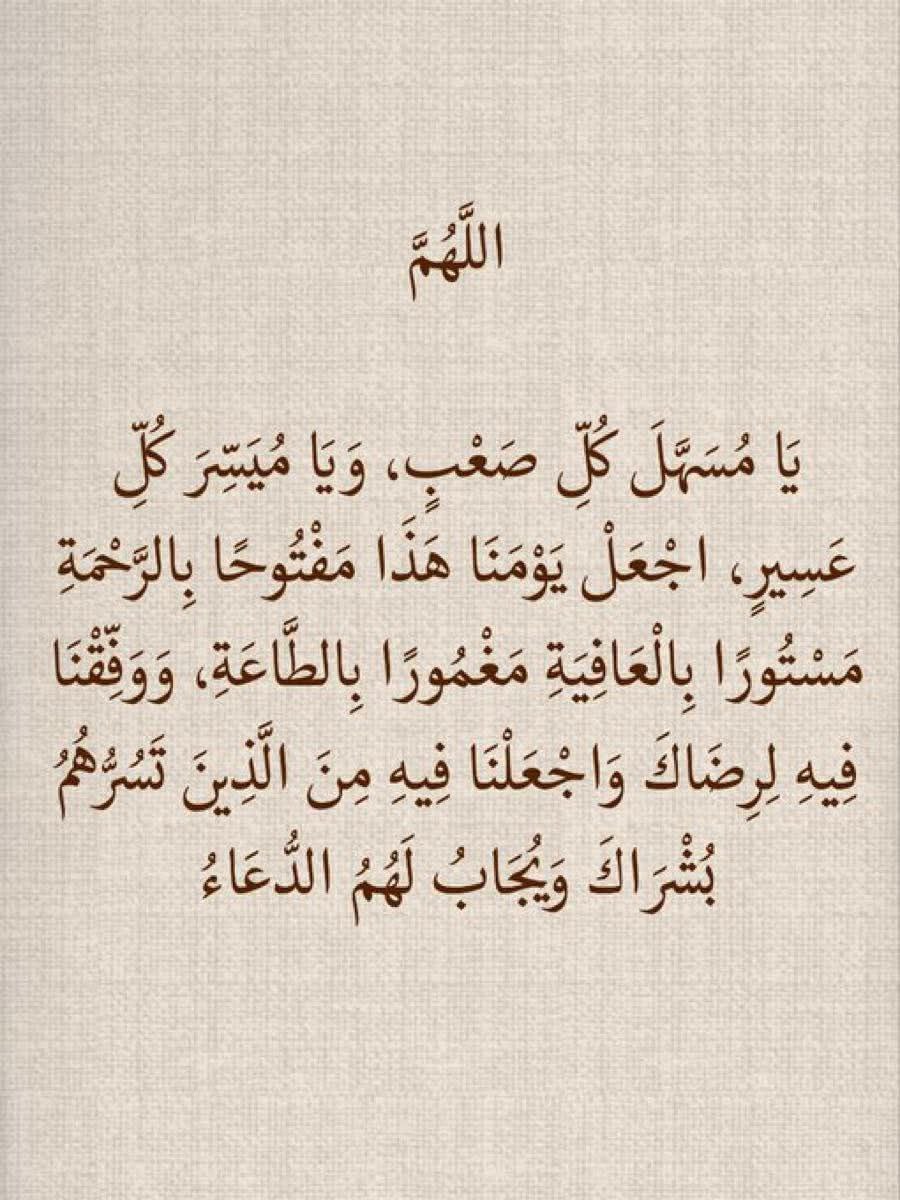 اللَّهُمَّ
يَا مُسَهَّلَ كُلِّ صَعْبٍ، وَيَا مُيَسِّرَ كُلِّ
عَسِيرٍ، اجْعَلْ يَوْمَنَا هَذَا مَفْتُوحًا بِالرَّحْمَةِ
مَسْتُورًا بِالْعَافِيَةِ مَغْمُورًا بِالطَّاعَةِ، وَوَفِّقْنَا
فِيهِ لِرِضَاكَ وَاجْعَلْنَا فِيهِ مِنَ الَّذِينَ تَسُرُّهُمُ
بُشْرَاكَ وَيُجَابُ لَهُمُ الدُّعَاءُ